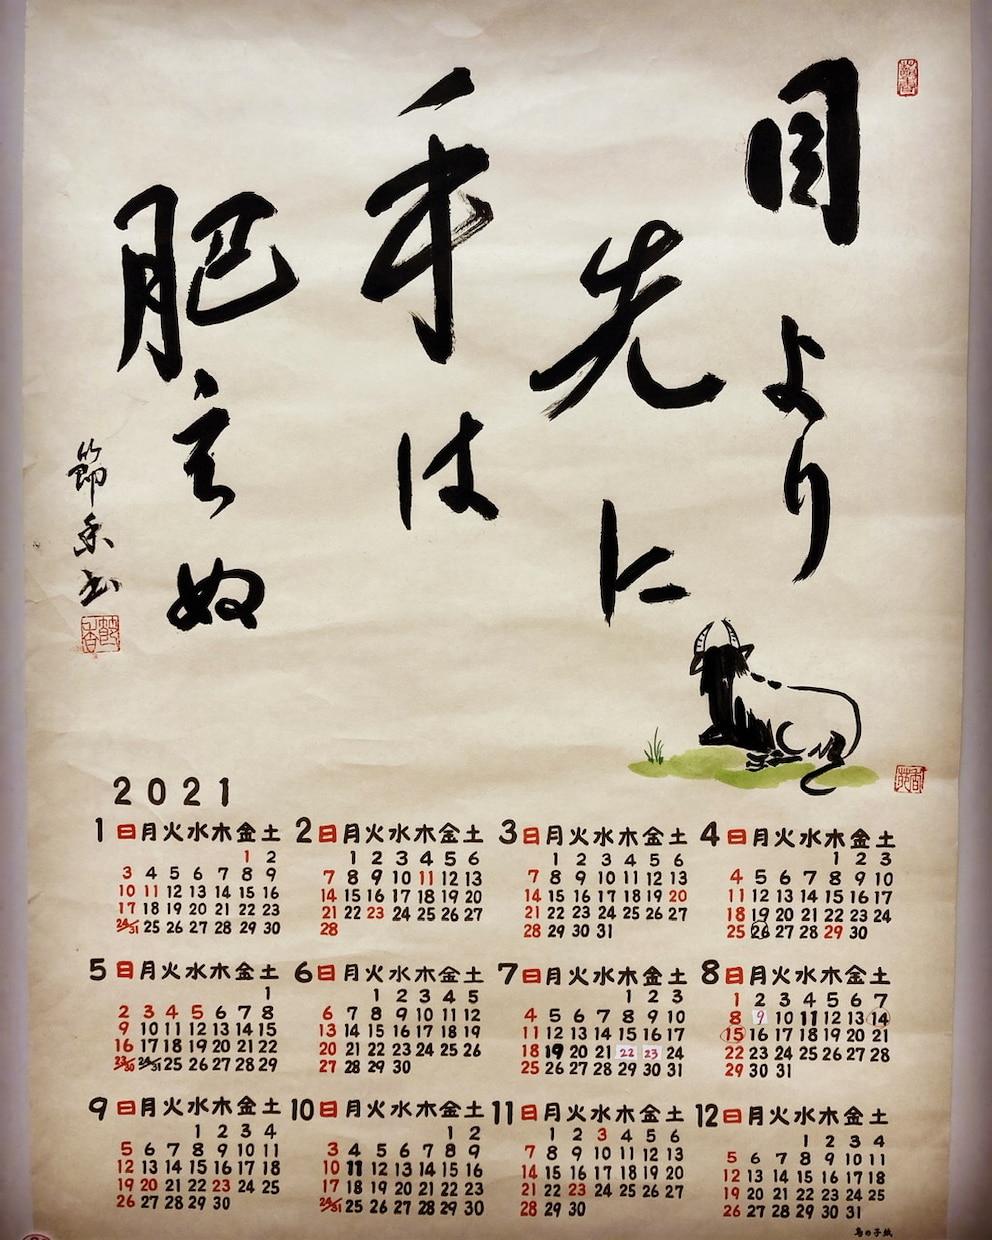 目より
先に
手は
肥えぬ
節香書
2021
1 日月火水木金土
1 2
3 4 5 6 7 8 9
10 11 12 13 14 15 16
17 18 19 20 21 22 23
24/31 25 26 27 28 29 30
2 日月火水木金土
1 2 3 4 5 6
7 8 9 10 11 12 13
14 15 16 17 18 19 20
21 22 23 24 25 26 27
28
3 日月火水木金土
1 2 3 4 5 6
7 8 9 10 11 12 13
14 15 16 17 18 19 20
21 22 23 24 25 26 27
28 29 30 31
4 日月火水木金土
1 2 3
4 5 6 7 8 9 10
11 12 13 14 15 16 17
18 19 20 21 22 23 24
25 26 27 28 29 30
5 日月火水木金土
1
2 3 4 5 6 7 8
9 10 11 12 13 14 15
16 17 18 19 20 21 22
23/30 24/31 25 26 27 28 29
6 日月火水木金土
1 2 3 4 5
6 7 8 9 10 11 12
13 14 15 16 17 18 19
20 21 22 23 24 25 26
27 28 29 30
7 日月火水木金土
1 2 3
4 5 6 7 8 9 10
11 12 13 14 15 16 17
18 19 20 21 22 23 24
25 26 27 28 29 30 31
8 日月火水木金土
1 2 3 4 5 6 7
8 9 10 11 12 13 14
15 16 17 18 19 20 21
22 23 24 25 26 27 28
29 30 31
9 日月火水木金土
1 2 3 4
5 6 7 8 9 10 11
12 13 14 15 16 17 18
19 20 21 22 23 24 25
26 27 28 29 30
10 日月火水木金土
1 2
3 4 5 6 7 8 9
10 11 12 13 14 15 16
17 18 19 20 21 22 23
24/31 25 26 27 28 29 30
11 日月火水木金土
1 2 3 4 5 6
7 8 9 10 11 12 13
14 15 16 17 18 19 20
21 22 23 24 25 26 27
28 29 30
12 日月火水木金土
1 2 3 4
5 6 7 8 9 10 11
12 13 14 15 16 17 18
19 20 21 22 23 24 25
26 27 28 29 30 31
鳥の子紙